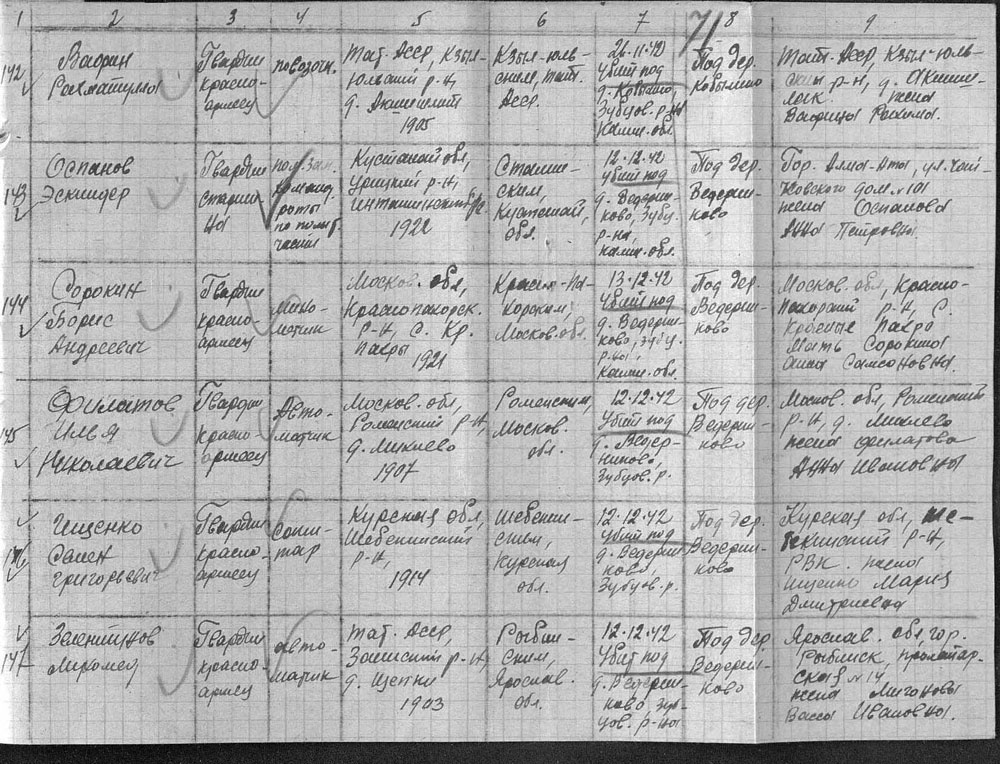 1 2 3 4 5 6 7 71 8 9
142
Вафин
Рахматулла
Гвардии
красно-
армеец
повозочн.
Тат. Асср, Кзыл-
юльский р-н,
д.
1905
Кзыл-юль-
ским, Тат.
Асср.
26.11.42
Убит под
д. Кобылино,
Зубцов. р-на
Калин. обл.
Под дер.
Кобылино
Татт. Асср, Кзыл-юль-
ский р-н, д.
жена
Вафина
143
Оспанов
Эскиндер
Гвардии
старши-
на
пом. зам.
команд.
роты
по полит.
части
Кустанай обл,
Урицкий р-н,
1922
Сталин-
ским,
Кустанай,
обл.
12.12.42
Убит под
д. Ведерни-
ково, Зубц.
р-на,
Калин. обл.
Под дер.
Ведерни-
ково
Гор. Алма-Ата, ул. Чай-
ковского дом. № 101
жена Оспанова
Анна Петровна.
144
Сорокин
Борис
Андреевич
Гвардии
красно-
армеец
Мино-
матчик
Москов. обл,
Краснопахорск.
р-н, с. Кр.
Пахры
1921
Красно-Па-
хорским,
Москов. обл.
13.12.42
Убит под
д. Ведерни-
ково, Зубц.
р-на,
Калин. обл.
Под дер.
Ведерни-
ково
Москов. обл, Красно-
Пахорский р-н, с.
Красные Пахро
Мать Сорокина
Анна Самсоновна.
145
Филатов
Илья
Николаевич
Гвардии
красно-
армеец
Авто-
матчик
Москов. обл,
Раменский р-н,
д.
1907
Раменским,
Москов.
обл.
12.12.42
Убит под
д. Ведер-
никово,
Зубцов. р.
Под дер.
Ведерни-
ково
Москов. обл, Раменский
р-н, д.
жена Филатова
Анна Ивановна
146
Ищенко
Семен
Григорьевич
Гвардии
красно-
армеец
Сани-
тар
Курская обл,
Шебекинский
р-н,
1914
Шебекин-
ским,
Курская
обл.
12.12.42
Убит под
д. Ведерни-
ково,
Зубцов. р.
Под дер.
Ведерни-
ково
Курская обл, Ше-
бекинский р-н,
РВК. жена
Ищенко Мария
Дмитриевна
147
Гвардии
красно-
армеец
авто-
матчик
Тат. Асср,
Заинский р-н,
д.
1903
Рыбин-
ским,
Ярослав.
обл.
12.12.42
Убит под
д. Ведерни-
ково Зуб-
цов. р-на
Под дер.
Ведерни-
ково
Ярослав. обл гор.
Рыбинск, пролетар-
ская № 14
жена
Васса Ивановна.